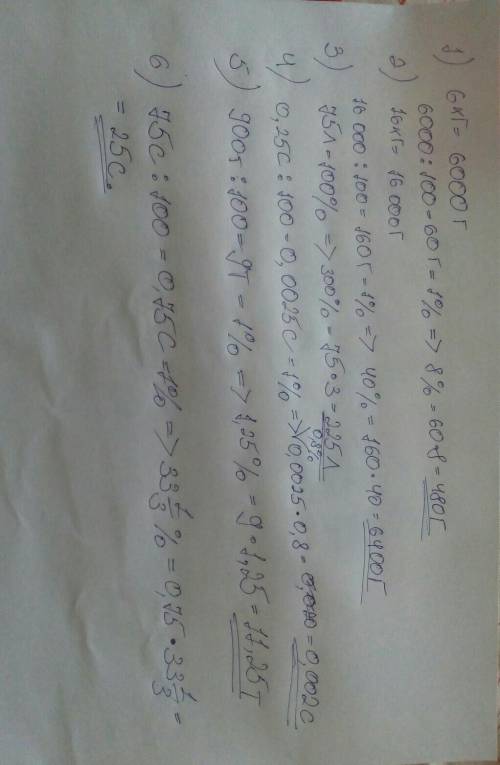 1) 6кг = 6000г
6000 : 100 = 60г = 1% => 8% = 60·8 = 480г
2) 16кг = 16 000г
16 000 : 100 = 160г = 1% => 40% = 160·40 = 6400г
3) 75л = 100% => 300% = 75·3 = 225л
4) 0,25с : 100 = 0,0025с = 1% => 0,8% = 0,0025·0,8 = 0,002с
5) 900т : 100 = 9т = 1% => 1,25% = 9·1,25 = 11,25т
6) 75с : 100 = 0,75с = 1% => 33 1/3 % = 0,75·33 1/3 =
= 25с.